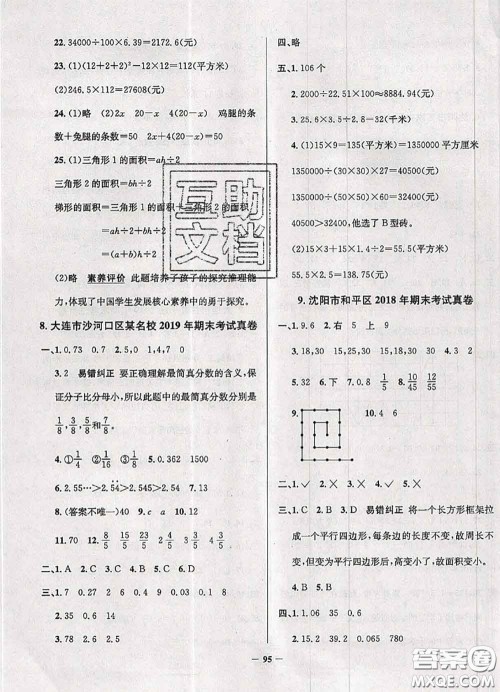 22. 34000÷100×6.39=2172.6(元)
23. (1)(12+2+2)²-12×12=112(平方米)
(2)246.5×112=27608(元)
24. (1)略 (2)2x 20-x 4(20-x) 鸡腿的条
数+兔腿的条数=50 2x+4(20-x)=50
25. (1)三角形1的面积=ah÷2
三角形2的面积=bh÷2
梯形的面积=三角形1的面积+三角形2的面积
=ah÷2+bh÷2
=(a+b)h÷2
(2)略 素养评价 此题培养了孩子的探究推理能
力,体现了中国学生发展核心素养中的勇于探究。
8. 大连市沙河口区某名校2019年期末考试真卷
一、1. 0,73 0.7 2. 5,0,1,4,7 0
3. 2 易错纠正 要正确理解最简真分数的含义,保
证分子比分母小,所以此题中的最简真分数分别是
1/8, 3/8, 5/8和7/8。
4. ①1/4 ②1 2/4 5. 0.36 1500
6. 2.55…>2.54>2.545>2.5
8. (答案不唯一)40 9. c a 10. 2
11. 70 12. 8/5 4/5 13. 2/5 15. 4/5
二、1. A 2. C 3. B 4. C 5. D
三、1. 7 0.27 2 8 6 0.6 1.9 0.8
2. 0.35 0.6 14
3. 78 2. 44 5. 32
四、略
五、1. 106个
2. 2000÷22.51×100≈8884.94(元)
3. 25.6×3÷1.5×3.2÷2=81.92(千米)
4. (1)15×9=135 135平方千米=1350000平方厘
米
1350000÷(30×30)×27=40500(元)
1350000÷(50×50)×60=32400(元)
40500>32400,他选了B型砖。
(2)15×3÷(1.5×2)=15(天)
9. 沈阳市和平区2018年期末考试真卷
一、1. 9.36 2. 右 5 上 9
3. 18 15 30 4. 15 6 5. 4.3 2
6. 5 32 7. 下 0.8 8. 1/5 10/5
9. 10. 4 6
二、1. ✓ 2. ✕ 3. ✕ 4. ✕
三、1. C 2. D 3. D 易错纠正 将一个长方形框架拉
成一个平行四边形,每条边的长度不变,故周长不
变,但变为平行四边形后,高变小了,故面积变小。
4. B 5. D
四、1. 1.06 35 0.6
2. 15.2 39 0.065 780
95
互助
文档
答案圈
MXQE.COM